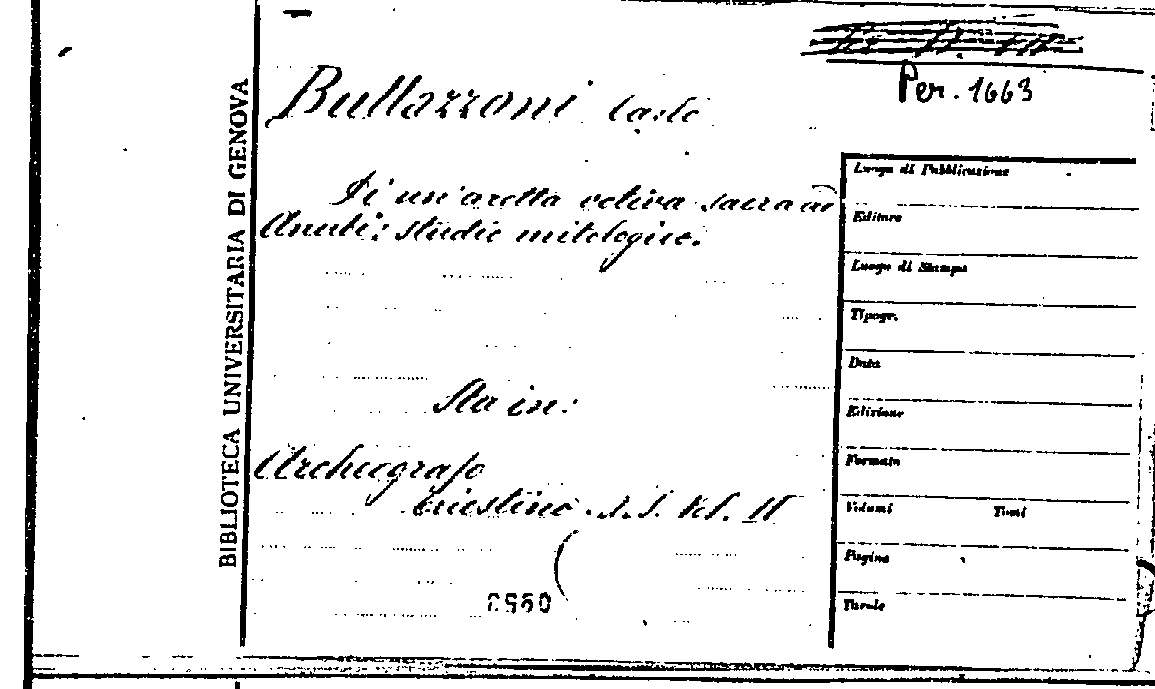 Per. 1663
BIBLIOTECA UNIVERSITARIA DI GENOVA
Bullazzoni Carlo
Di un'aretta votiva sacra ad
Anubi: studio mitologico.
Sta in:
Archeografo
Triestino. S.S. Vol. II
0990
Luogo di Pubblicazione
Editore
Luogo di Stampa
Tipogr.
Data
Edizione
Formato
Volumi Tomi
Pagine
Tavole